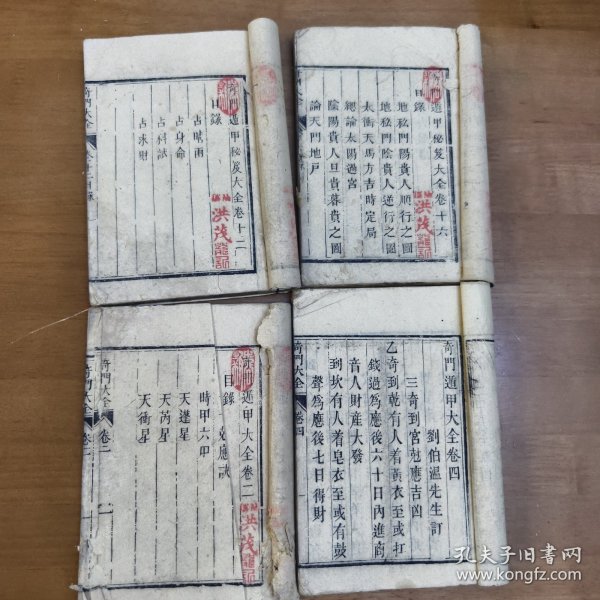 奇門遁甲秘笈大全卷十二
目錄
占晴雨
占身命
占科試
占求財
奇門大全
洪茂
奇門遁甲秘笈大全卷十六
目錄
地私門陽貴人順行之圖
地私門陰貴人逆行之圖
太衝天馬方吉時定局
總論太陽過宮
陰陽貴人旦貴暮貴之圖
論天門地戶
洪茂
遁甲大全卷二
目錄
應訣
時甲六甲
天蓬星
天芮星
天衝星
奇門大全
卷二
洪茂
奇門遁甲大全卷四
劉伯溫先生訂
三奇到宮尅應吉凶
乙奇到乾有人着黃衣至或扛
錢過為應後六十日內進商
音人財產大發
到坎有人着皂衣至或有鼓
聲為應後七日得財
奇門大全
卷四
孔夫子旧书网
www.kongfz.com